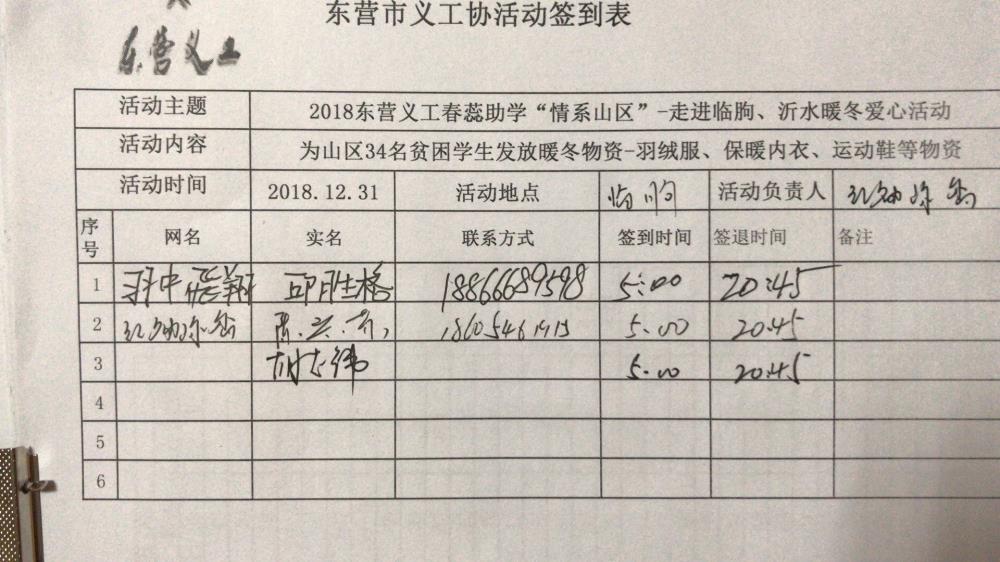 东营市义工协活动签到表
东营义工
活动主题 2018东营义工春蕊助学“情系山区”-走进临朐、沂水暖冬爱心活动
活动内容 为山区34名贫困学生发放暖冬物资-羽绒服、保暖内衣、运动鞋等物资
活动时间 2018.12.31 活动地点 临朐 活动负责人
序号 网名 实名 联系方式 签到时间 签退时间 备注
1 邱胜格 18866689598 5:00 20:45
2 5:00 20:45
3 5:00 20:45
4
5
6